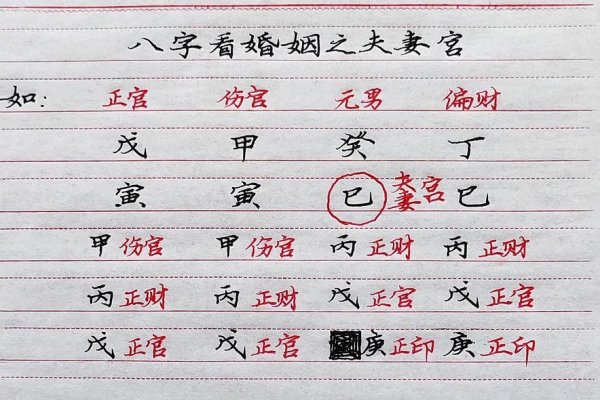 八字看婚姻之夫妻宫
如: 正官 伤官 元男 偏财
戊 甲 癸 丁
寅 寅 巳 夫妻宫 巳
甲伤官 甲伤官 丙正财 丙正财
丙正财 丙正财 戊正官 戊正官
戊正官 戊正官 庚正印 庚正印